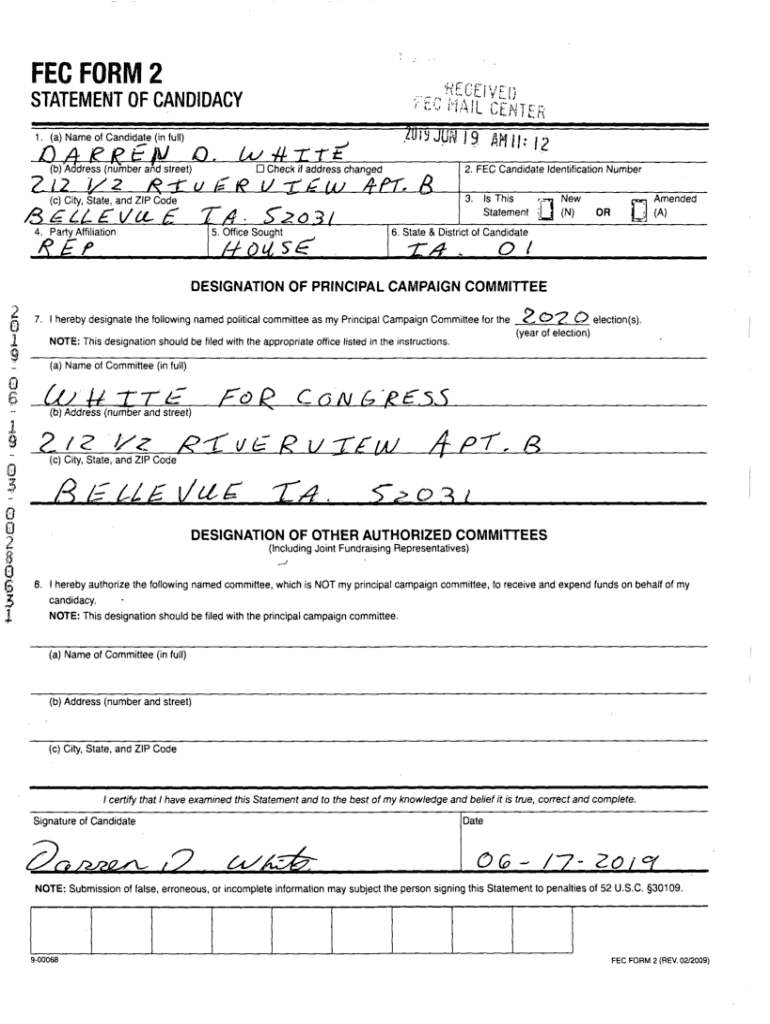 FEC FORM 2
STATEMENT OF CANDIDACY
RECEIVED
FEC MAIL CENTER
2019 JUN 19 AM 11: 12
1. (a) Name of Candidate (in full)
DARREN D. WHITE
(b) Address (number and street) ☐ Check if address changed
2. FEC Candidate Identification Number
212 1/2 RIVERVIEW APT. B
(c) City, State, and ZIP Code
3. Is This Statement New (N) OR Amended (A)
BELLEVUE IA. 52031
4. Party Affiliation 5. Office Sought 6. State & District of Candidate
REP HOUSE IA. 01
DESIGNATION OF PRINCIPAL CAMPAIGN COMMITTEE
7. I hereby designate the following named political committee as my Principal Campaign Committee for the 2020 election(s).
(year of election)
NOTE: This designation should be filed with the appropriate office listed in the instructions.
(a) Name of Committee (in full)
WHITE FOR CONGRESS
(b) Address (number and street)
212 1/2 RIVERVIEW APT. B
(c) City, State, and ZIP Code
BELLEVUE IA. 52031
DESIGNATION OF OTHER AUTHORIZED COMMITTEES
(Including Joint Fundraising Representatives)
8. I hereby authorize the following named committee, which is NOT my principal campaign committee, to receive and expend funds on behalf of my
candidacy.
NOTE: This designation should be filed with the principal campaign committee.
(a) Name of Committee (in full)
(b) Address (number and street)
(c) City, State, and ZIP Code
I certify that I have examined this Statement and to the best of my knowledge and belief it is true, correct and complete.
Signature of Candidate Date
Darren D. White 06-17-2019
NOTE: Submission of false, erroneous, or incomplete information may subject the person signing this Statement to penalties of 52 U.S.C. §30109.
9-00068 FEC FORM 2 (REV. 02/2009)
2019-06-19-03-00280631